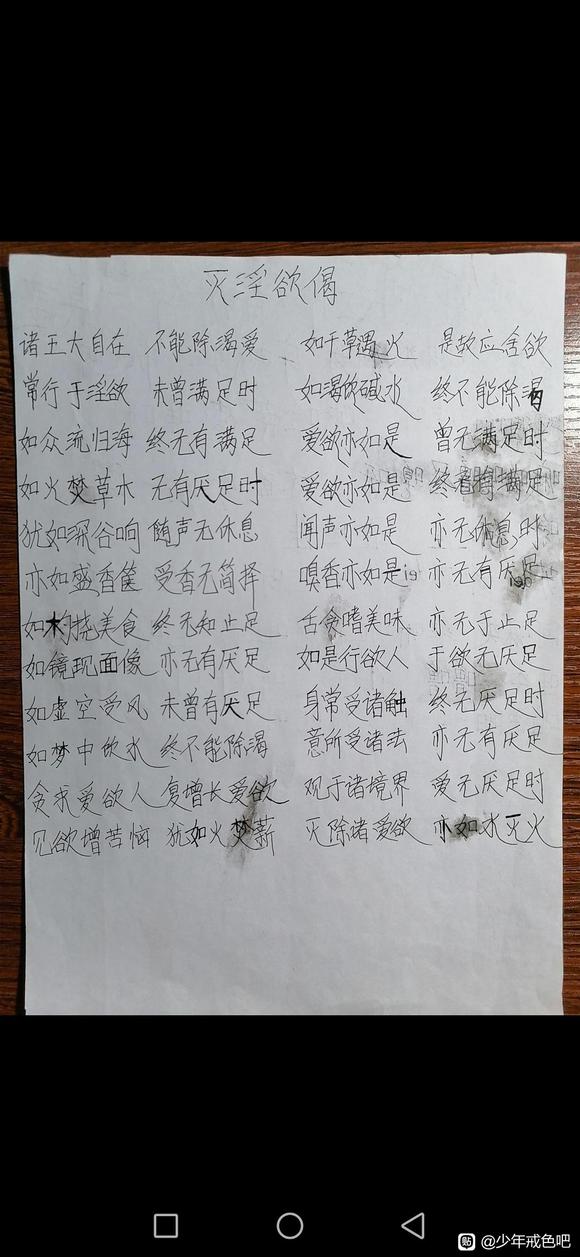 灭淫欲偈
诸王大自在 不能除渴爱 如干草遇火 是故应舍欲
常行于淫欲 未曾满足时 如渴饮碱水 终不能除渴
如众流归海 终无有满足 爱欲亦如是 曾无满足时
如火焚草木 无有厌足时 爱欲亦如是 终者有满足
犹如深谷响 随声无休息 闻声亦如是 亦无休息时
亦如盛香箧 受香无简择 嗅香亦如是 亦无有厌足
如杓挠美食 终无知止足 舌贪嗜美味 亦无于止足
如镜现面像 亦无有厌足 如是行欲人 于欲无厌足
如虚空受风 未曾有厌足 身常受诸触 终无厌足时
如梦中饮水 终不能除渴 意所受诸法 亦无有厌足
贪求爱欲人 复增长爱欲 观于诸境界 爱无厌足时
见欲增苦恼 犹如火焚薪 灭除诸爱欲 亦如水灭火
贴 @少年戒色吧